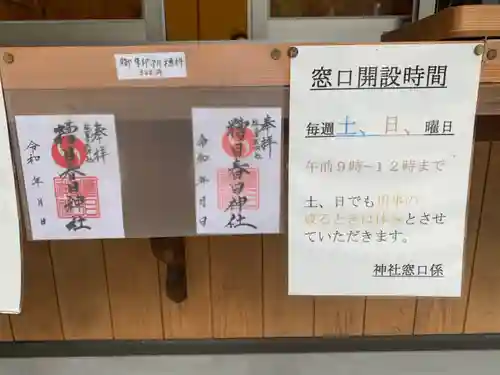 御朱印初穂料
300円
奉拝
春日神社
令和 年 月 日
奉拝
春日神社
令和 年 月 日
窓口開設時間
毎週土、日、曜日
午前9時~12時まで
土、日でも用事の
或るときは休みとさせ
ていただきます。
神社窓口係